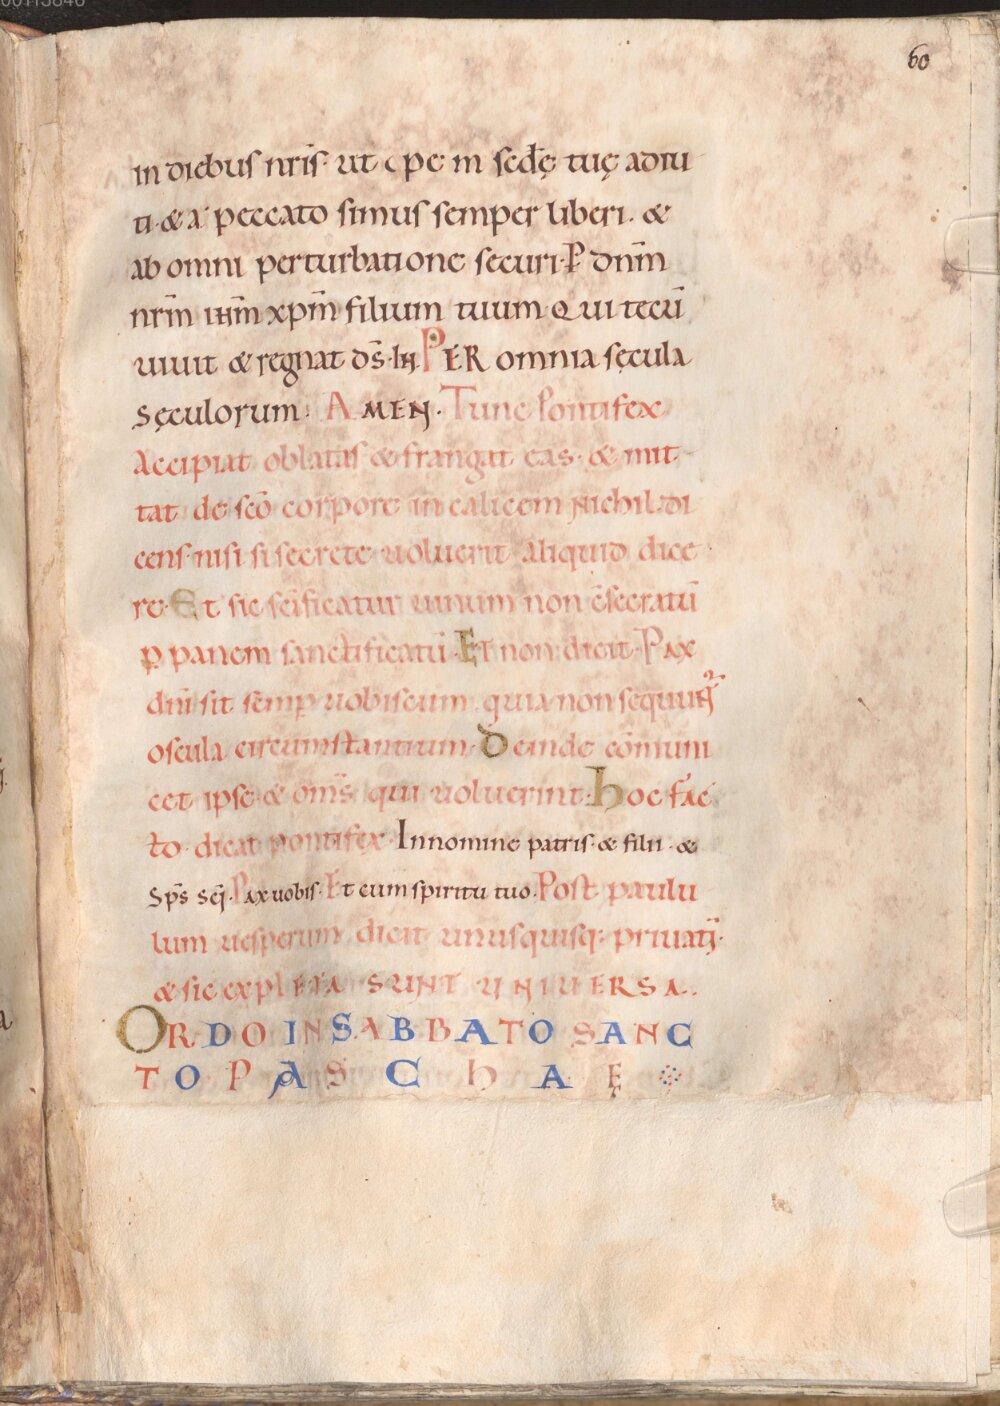 60
in diebus nr̄is· ut ope m̄ sedę tuę adiu
ti· & a peccato simus semper liberi· &
ab omni perturbatione securi· P dnm̄
nrm̄ ihm̄ xpm̄ filium tuum Qui tecū
uiuit & regnat ds̄· IN· PER omnia sęcula
sęculorum· AMEN· Tunc Pontifex
Accipiat oblatas & frangat eas· & mit
tat de scō corpore in calicem Nichil di
cens· nisi si secrete uoluerit aliquid dice
re· Et sic sc̄ificatur uinum non c̄secratū
ꝑ panem sanctificatū· Et non dicit· Pax
dn̄i sit semꝑ uobiscum· quia non sequunt᷑
oscula circumstantium· Deinde cōmuni
cet ipse & om̄s qui uoluerint: hoc fac
to dicat pontifex· In nomine patris· & filii· &
sp̄s scī· Pax uobis· Et cum spiritu tuo· Post paulu
lum uesperum dicit unusquisq: priuatī·
& sic expleta SUNT UNIUERSA·
ORDO IN SABBATO SANC
TO PASCHAE